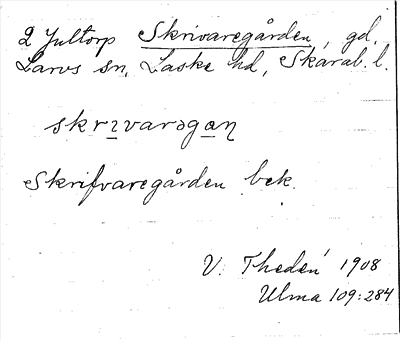 2 Jultorp Skrivaregården, gd.
Larvs sn, Laske hd, Skarab. l.
skrɪvarəgan
Skrifvaregården bek.
V. Thedén 1908
Ulma 109:284